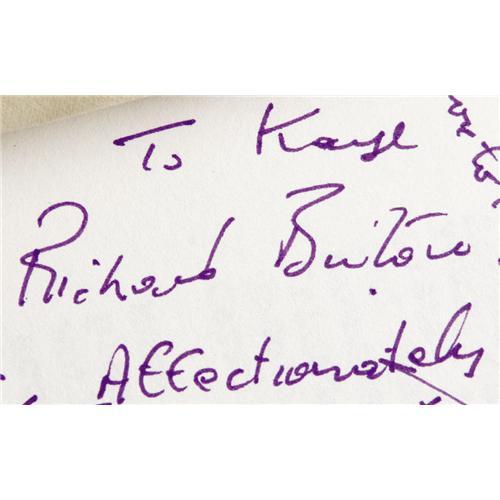 To Kaye
Richard Burton
Affectionately